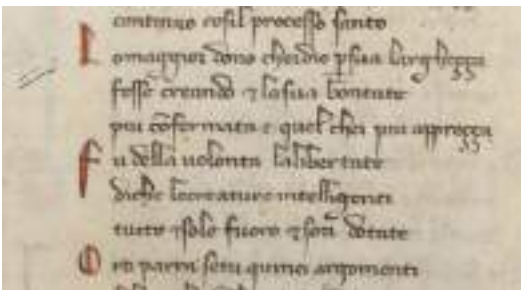 continuo cosi'l processo santo
Lo maggior dono che idio p sua larghezza
fesse creando ⁊ la sua bontate
piu cõformata e quel chei piu apprezza
Fu della uolonta la libertate
diche lecreature intelligenti
tutte ⁊ sole fuoro ⁊ son dotate
Or parra setu quinci argomenti